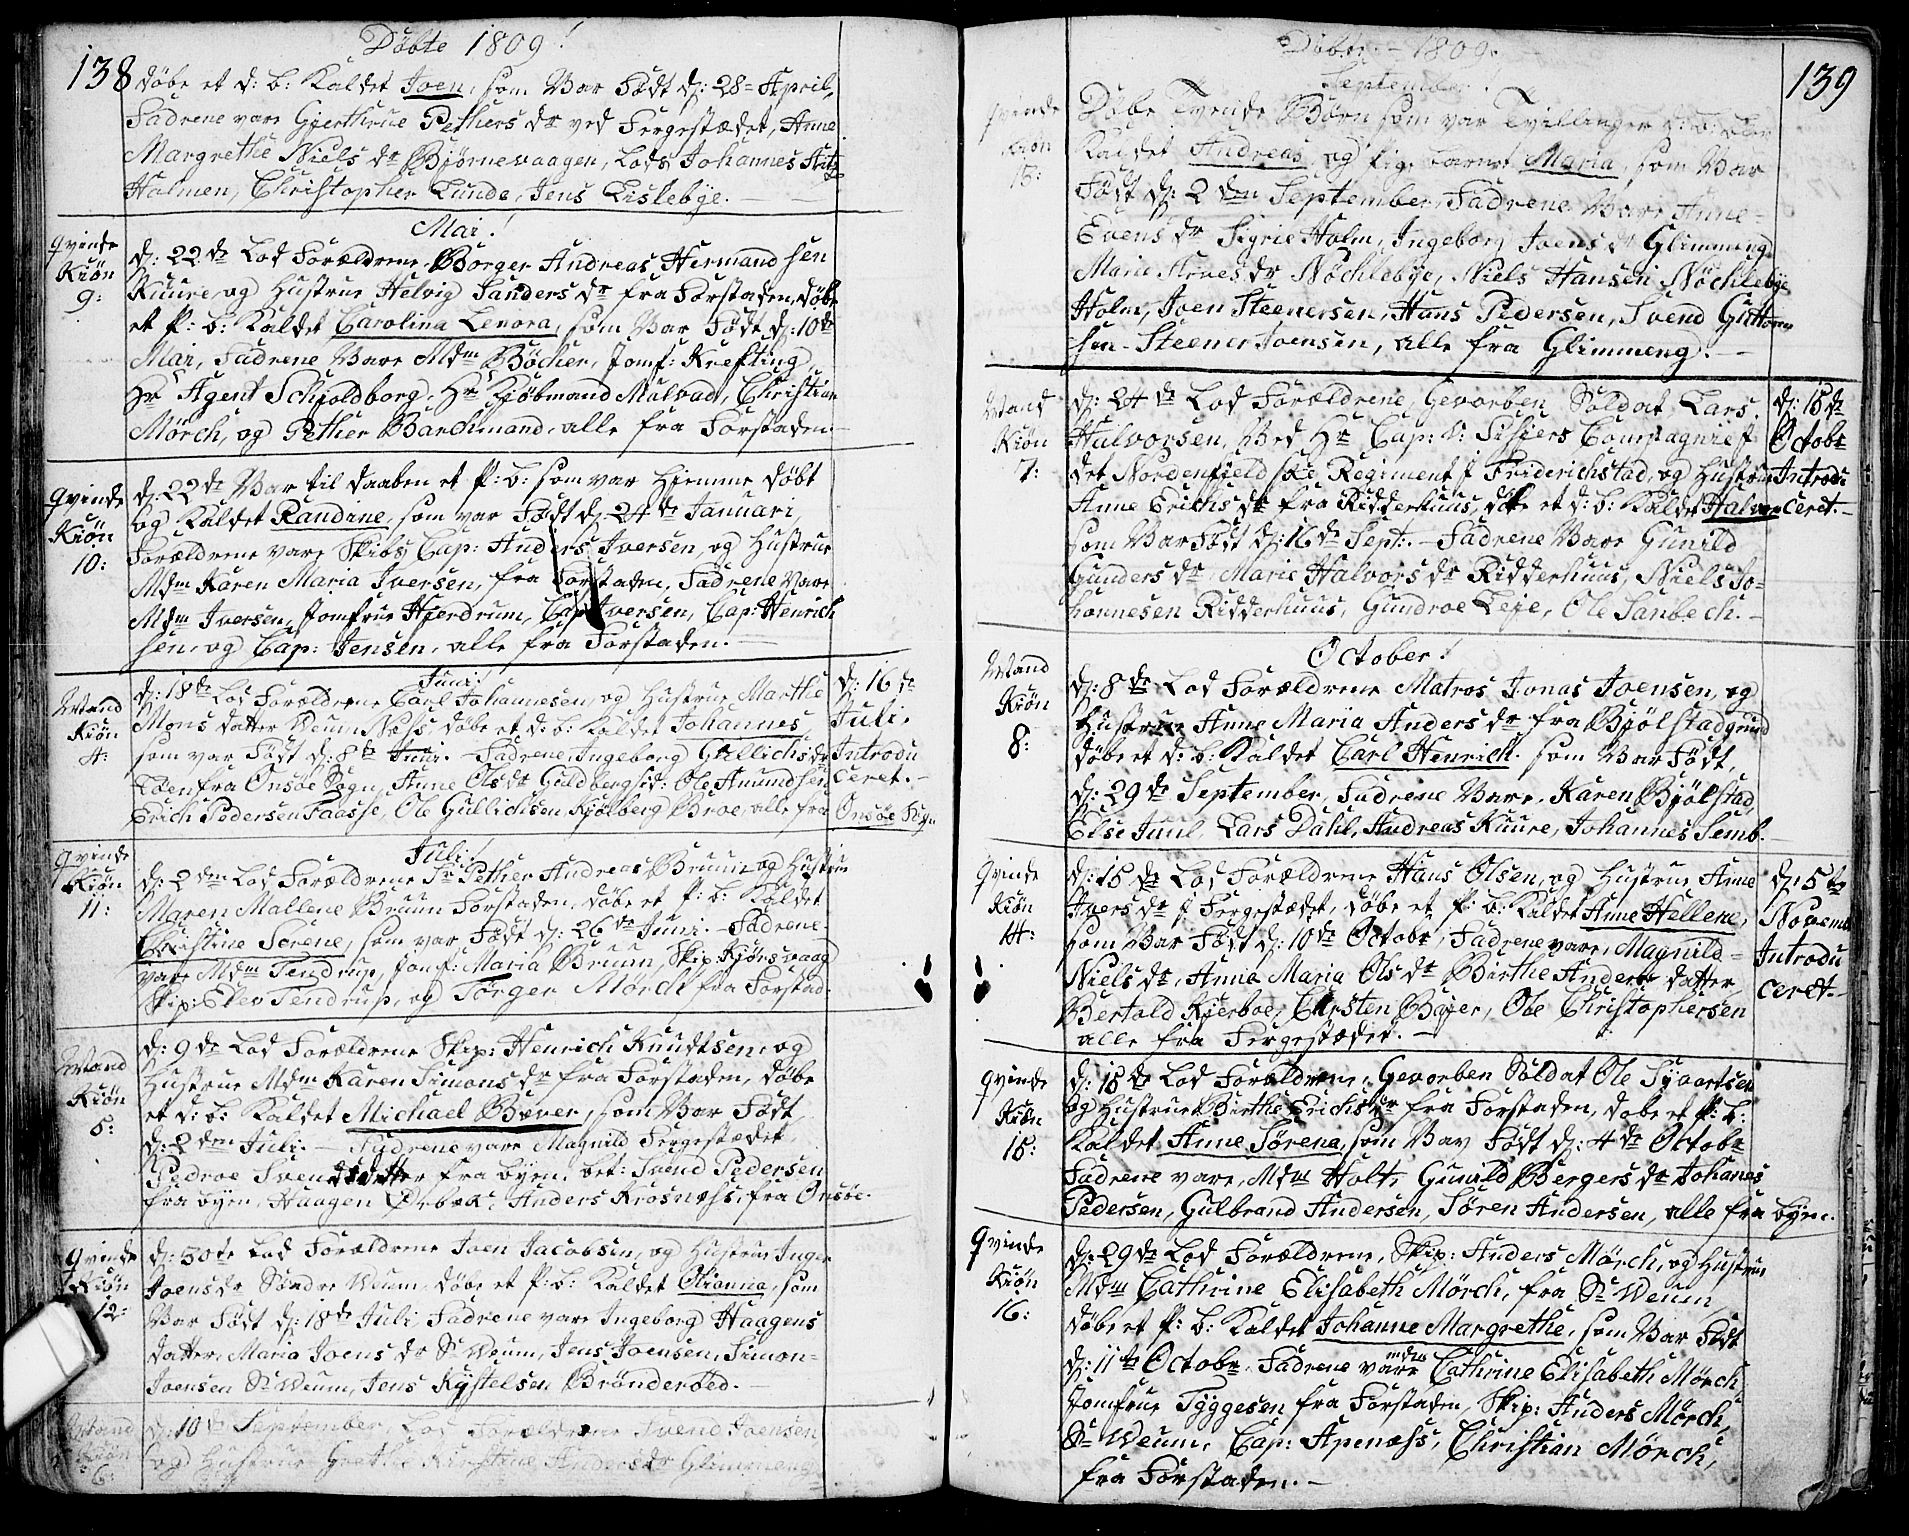 138
Døbte 1809!
døbe et d: b: Kaldet Joen, som Var Født d: 28= April,
Fadrene vare Gjerthrue Pethers dr ved Fergestædet, Anne
Margrethe Niels dr Bjørnevaagen, Lods Johannes
Holmen, Christopher Lunde, Jens Lislebye.
Mai!
Qvinde
Kiøn
9:
d: 22de Lod Forældrene Borger Andreas Hermandsen
Kuure, og Hustrue Helvig Sanders dr fra Forstaden, døbe
et p: b: Kaldet Carolina Lenora, som Var Født d: 10de
Mai, Fadrene Vare Mdm Bøcher, Jomf: Krefting,
Hr Agent Schjoldborg, Hr Kjøbmand Malvad, Christian
Mørch, og Pether Barchmand, alle fra Forstaden.
Qvinde
Kiøn
10:
d: 22de Var til daaben et p: b: som var Hjemme døbt
og Kaldet Randine, som var Født d: 24de Januari,
Forældrene vare Skibs Cap: Anders Iversen, og Hustrue
Mdm Karen Maria Iversen, fra Forstaden, Fadrene Vare
Mdm Iversen, Jomfrue Hjerdrum, Cap Iversen, Cap: Henrich
sen, og Cap: Jensen, alle fra Forstaden.
Juni!
Mand
Kiøn
4:
d: 18de Lod Forældrene Carl Johannesen, og Hustrue Marthe
Mons datter Weum Næss, døbe et d: b: Kaldet Johannes
som var Født d: 8de Juni. Fadrene, Ingeborg Gullichs dr
fra Onsøe Sogn, Anne Ols dr Guldbergsid: Ole Amundsen
Erich Pedersen Faasse, Ole Gullichsen Kjølberg Broe, alle fra Onsøe Sogn
d: 16de
Juli.
Introdu
ceret.
Juli!
Qvinde
Kiøn
11:
d: 2den Lod Forældrene Sr Pether Andreas Bruun og Hustrue
Maren Mallene Bruun Forstaden, døbe et p: b: Kaldet
Christine Sorene, som var Født d: 26de Juni. Fadrene
vare Mdm Tendrup, Jomf: Maria Bruun, Skip: Kjørsvaag
Skip: Elev Tendrup, og Tørger Mørch fra Forstad.
Mand
Kiøn
5:
d: 9de Lod Forældrene Skip: Henrich Knudtsen, og
Hustrue Mdm Karen Simons dr fra Forstaden, døbe
et d: b: Kaldet Michael Bæver, som Var Født
d: 2den Juli. Fadrene vare Magnild Fergestædet
Pedroe Svensdatter fra byen, bet: Svend Pedersen
fra byen, Haagen Ørbæk, Anders Krosnæss, fra Onsøe.
Qvinde
Kiøn
12:
d: 30te Lod Forældrene Joen Jacobsen, og Hustrue Inger
Joens dr Søndre Weum, døbe et p: b: Kaldet Olianna, som
Var Født d: 18de Juli Fadrene vare Ingeborg Haagens
datter, Maria Joens dr Sr Weum, Jens Joensen, Simon
Joensen Sr Weum, Jens Kystelsen Brønderød.
Mand
Kiøn
6:
d: 10de September, Lod Forældrene Svend Joensen
og Hustrue Grethe Kirstine Anders dr Glimmeng
139
Døbte 1809.
September!
Qvinde
Kiøn
13:
Døbe Tvende Børn som var Tvillinger
Kaldet Andreas og pige barnet Maria, som Var
Født d: 2den September, Fadrene Vare Anne
Evens dr Sigrie Holm, Ingeborg Joens dr Glimmeng
Marie Arnes dr Nøchlebye, Niels Hansen Nøchlebye
Holm, Joen Steenersen, Hans Pedersen, Svend Guttorm
sen Steener Joensen, alle fra Glimmeng.
Mand
Kiøn
7:
d: 24de Lod Forældrene, Gevorben Soldat Lars
Halvorsen, Ved Hr Cap: V: Sisiers Compagnie i
det Nordenfjeldske Regiment i Friderichstad, og Hustrue
Anne Erichs dr fra Ridderhuus, døbe et d: b: Kaldet Halvor
som Var Født d: 16de Sept: Fadrene Vare Gunild
Gunders dr, Marie Halvors dr Ridderhuus, Niels Jo-
hannesen Ridderhuus, Gundroe Leje, Ole Sanbech.
d: 15de
Octobr
Introdu
ceret.
October!
Mand
Kiøn
8:
d: 8de Lod Forældrene Matros Jonas Joensen, og
Hustrue Anne Maria Anders dr fra Bjølstadgrund
døbe et d: b: Kaldet Carl Henrich som Var Født
d: 29de September, Fadrene Vare, Karen Bjølstad,
Else Juul, Lars Dahl, Andreas Kuure, Johannes Semb.
Qvinde
Kiøn
14:
d: 15de Lod Forældrene Hans Olsen, og Hustrue Anne
Ivers dr i Fergestædet, døbe et p: b: Kaldet Anne Hellene,
som Var Født d: 10de Octobr, Fadrene vare, Magnild
Niels dr, Anna Maria Ols dr Birthe Anders datter
Bertold Kierboe, Carsten Bajer, Ole Christophersen
alle fra Fergestædet.
d: 5te
Novemb
Introdu
ceret.
Qvinde
Kiøn
15:
d: 15de Lod Forældrene, Gevorben Soldat Ole Syvertsen
og Hustrue Birthe Erichs dr fra Forstaden, døbe et p: b:
Kaldet Anne Sørena, som Var Født d: 4de Octobr
Fadrene vare, Mdm Holt, Gunild Bergers dr Johanes
Pedersen, Gulbrand Andersen, Søren Andersen, alle fra byen.
Qvinde
Kiøn
16:
d: 29de Lod Forældrene, Skip: Anders Mørch, og Hustrue
Mdm Cathrine Elisabeth Mørch, fra Sr Weum
døbe et p: b: Kaldet Johanne Margrethe, som Var Født
d: 11te Octobr, Fadrene vare Mdm Cathrine Elisabeth Mørch
Jomfrue Tyggesen fra Forstaden, Skip: Anders Mørch,
Sr Weum, Cap: Apenæss, Christian Mørch,
fra Forstaden.